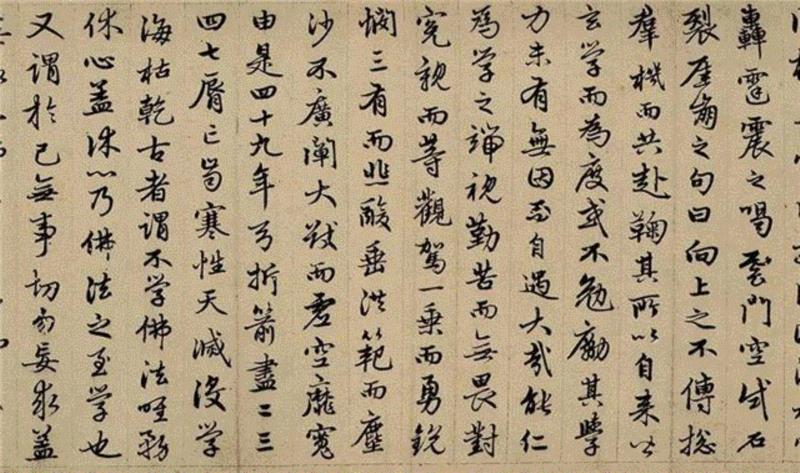 轟霆震之喝雲門空石
裂崖崩之句曰向上之不傳揔
羣機而共赴鞠其所以自来皆
玄学而為度或不勉勵其學
力未有無因而自過大哉能仁
為学之端視勤苦而無畏對
寃親而等觀駕一乗而勇銳
憫三有而悲酸垂洪範而塵
沙不廣闡大猷而虚空靡寬
由是四十九年弓折箭盡二三
四七脣亡齒寒性天滅没学
海枯乾古者謂不学佛法唯務
休心盖休心乃佛法之至学也
又謂於己無事切勿妄求盖